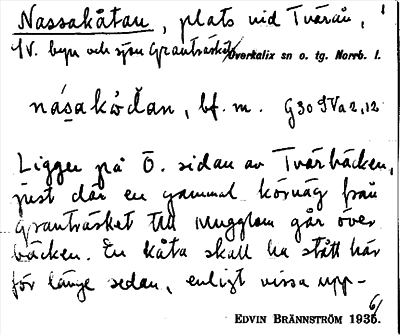 Nassakåtan, plats vid Tvärån,
SV. byn och sjön Granträsket, Överkalix sn o. tg. Norrb. l.
násakȯ̀dan, bf. m. G30 SVa2,12
Ligger på Ö. sidan av Tvärbäcken,
just där en gammal körväg från
Granträsket till Mugglom går över
bäcken. En kåta skall ha stått här
för länge sedan, enligt vissa upp-
EDVIN BRÄNNSTRÖM 1936.